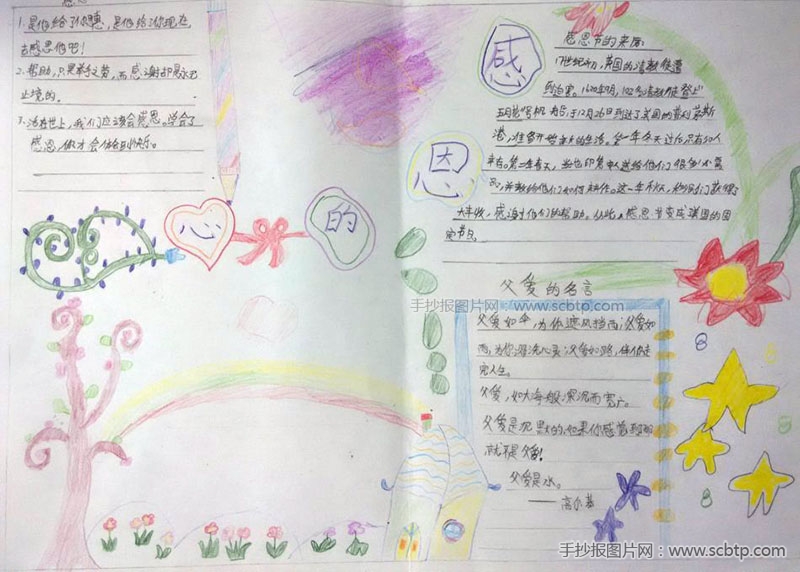 感恩
1. 是他给了你
现在
去感恩他吧！
2. 帮助，只是举手之劳，而感谢却是永无
止境的。
3. 活在世上，我们应该会感恩。学会了
感恩，你才会体会到快乐。
心的
感
恩
感恩节的来历：
17世纪初，英国的清教徒遭
到迫害。1620年9月，102名清教徒登上
五月花号帆船，于12月26日到达了美国的普利茅斯
港，准备开始新的生活。
年春天，当地印第安人送给他们很多必需
品，并教给他们如何耕作。这一年秋天，移民们获得
大丰收，感谢
他们的帮助。从此，感恩节变成美国的固
定节日。
父爱的名言
手抄报图片网：www.scbtp.com
父爱如伞，为你遮风挡雨；父爱如
雨，为你濯洗心灵；父爱如路，伴你走
完人生。
父爱，如大海般深沉而宽广。
父爱是沉默的，如果你感觉到了那
就不是父爱！
父爱是水。
——高尔基
手抄报图片网：www.scbtp.com